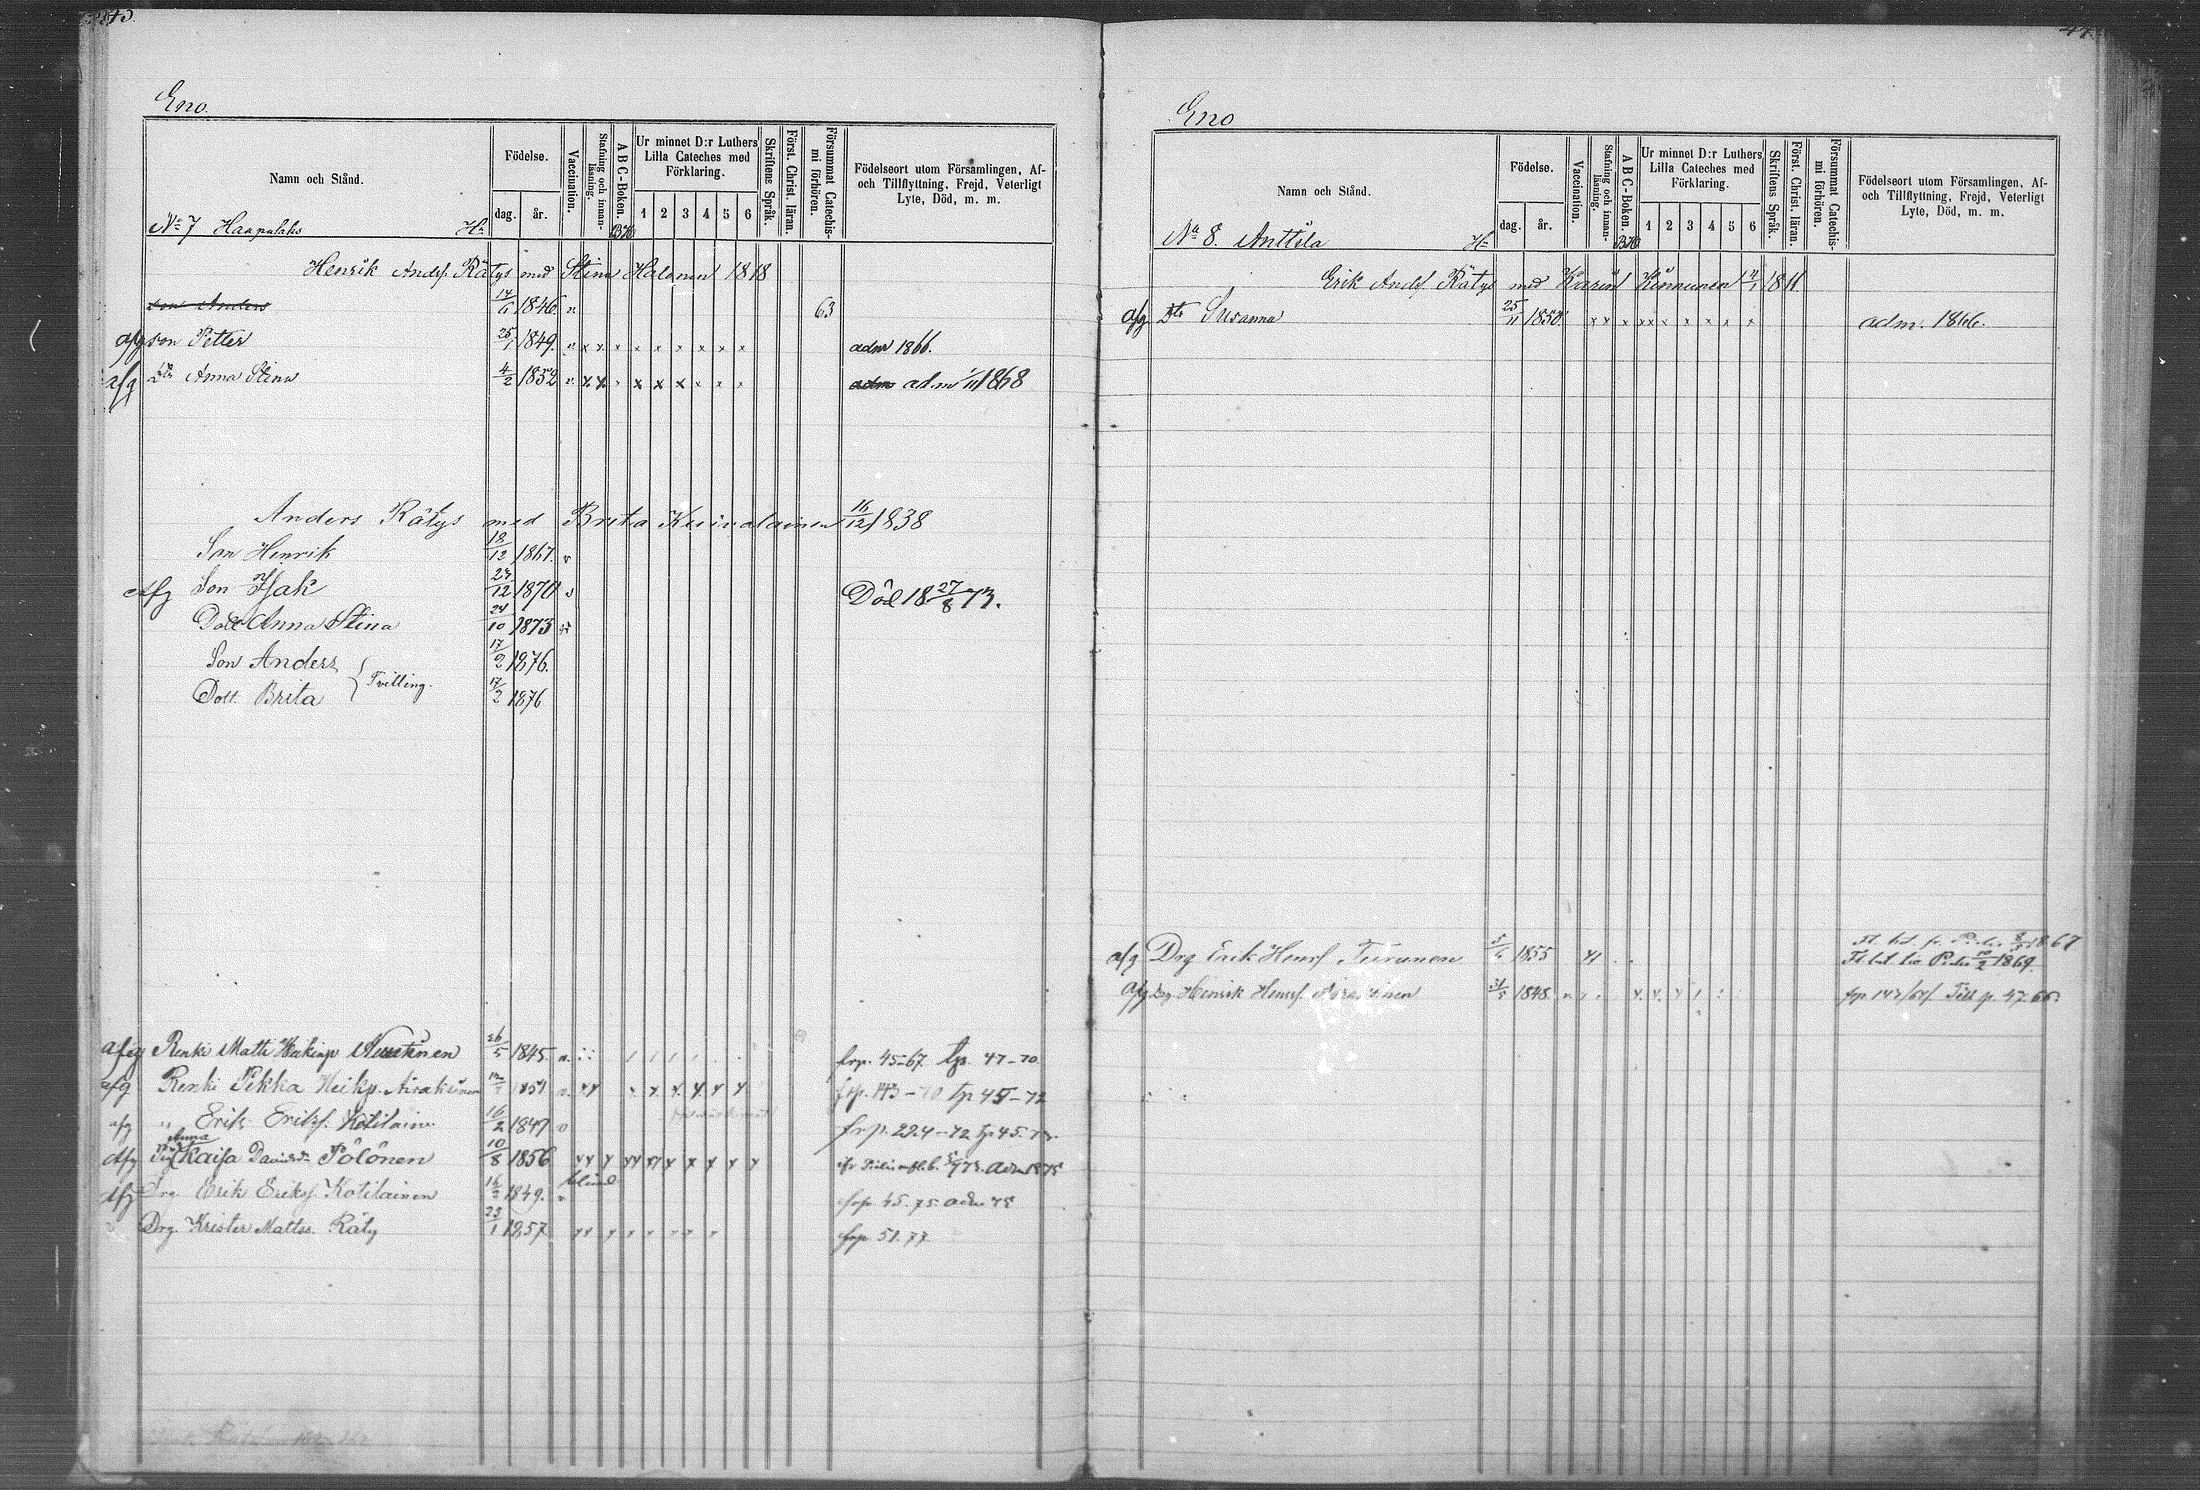 Eno.
Namn och Stånd.
Födelse.
dag. år.
Vaccination.
Stafning och innanläsning.
A B C-Boken.
Ur minnet D:r Luthers Lilla Cateches med Förklaring.
1 2 3 4 5 6
Skriftens Språk.
Först. Christ. läran.
Försummat Catechismi förhören.
Födelseort utom Församlingen, Af- och Tillflyttning, Frejd, Veterligt Lyte, Död, m. m.
No 7 Haapalaks H:
Henrik Andsf. Rätys med Stina Halonen 1818
son Anders 1846 v 63
afg son Petter 25/1 1849. v x x x x x x x x x adm 1866.
afg Dtr Anna Stina 4/2 1852 v x x x x x x x x x adm adm 1868
Anders Rätys med Brita Kuivalainen 16/12 1838
Son Henrik 18/12 1867. v
Afg Son Isak 12 1870 v Död 18 27/8 73.
Dott Anna Stina 24/10 1873
Son Anders 17/2 1876.
Dott. Brita 17/2 1876
Tvilling.
afg Renki Matti Heikinp 26/5 1845. frp. 45-67. tp. 47-70.
afg Renki Pekka Heikp. Airaksinen 1851 frp. 143-70 tp 45-72
afg " Erik Eriksf. Kotilainen 16/2 1847 v frp. 224-72 tp 45.
Afg Anna Kaisa Davidsdr Pölönen 10/8 1856 adm 1875
afg Drg. Erik Eriksf Kotilainen 16/2 1849. v blind frp 45. 75. adm 75
Drg. Krister Mattss. Räty 23/1 1857. frp 51. 77
Eno
Namn och Stånd.
Födelse.
dag. år.
Vaccination.
Stafning och innanläsning.
A B C-Boken.
Ur minnet D:r Luthers Lilla Cateches med Förklaring.
1 2 3 4 5 6
Skriftens Språk.
Först. Christ. läran.
Försummat Catechismi förhören.
Födelseort utom Församlingen, Af- och Tillflyttning, Frejd, Veterligt Lyte, Död, m. m.
No 8. Anttila H:
Erik Andsf Rätys med Karin Kinnunen 1811.
afg Dtr Susanna 25/11 1850. x x x x x x x x x adm. 1866.
1867
afg Drg Erik Henrsf Turunen 1855 1869.
afg Drg. Henrik Henrsf. 1848. Till p. 47. 66.